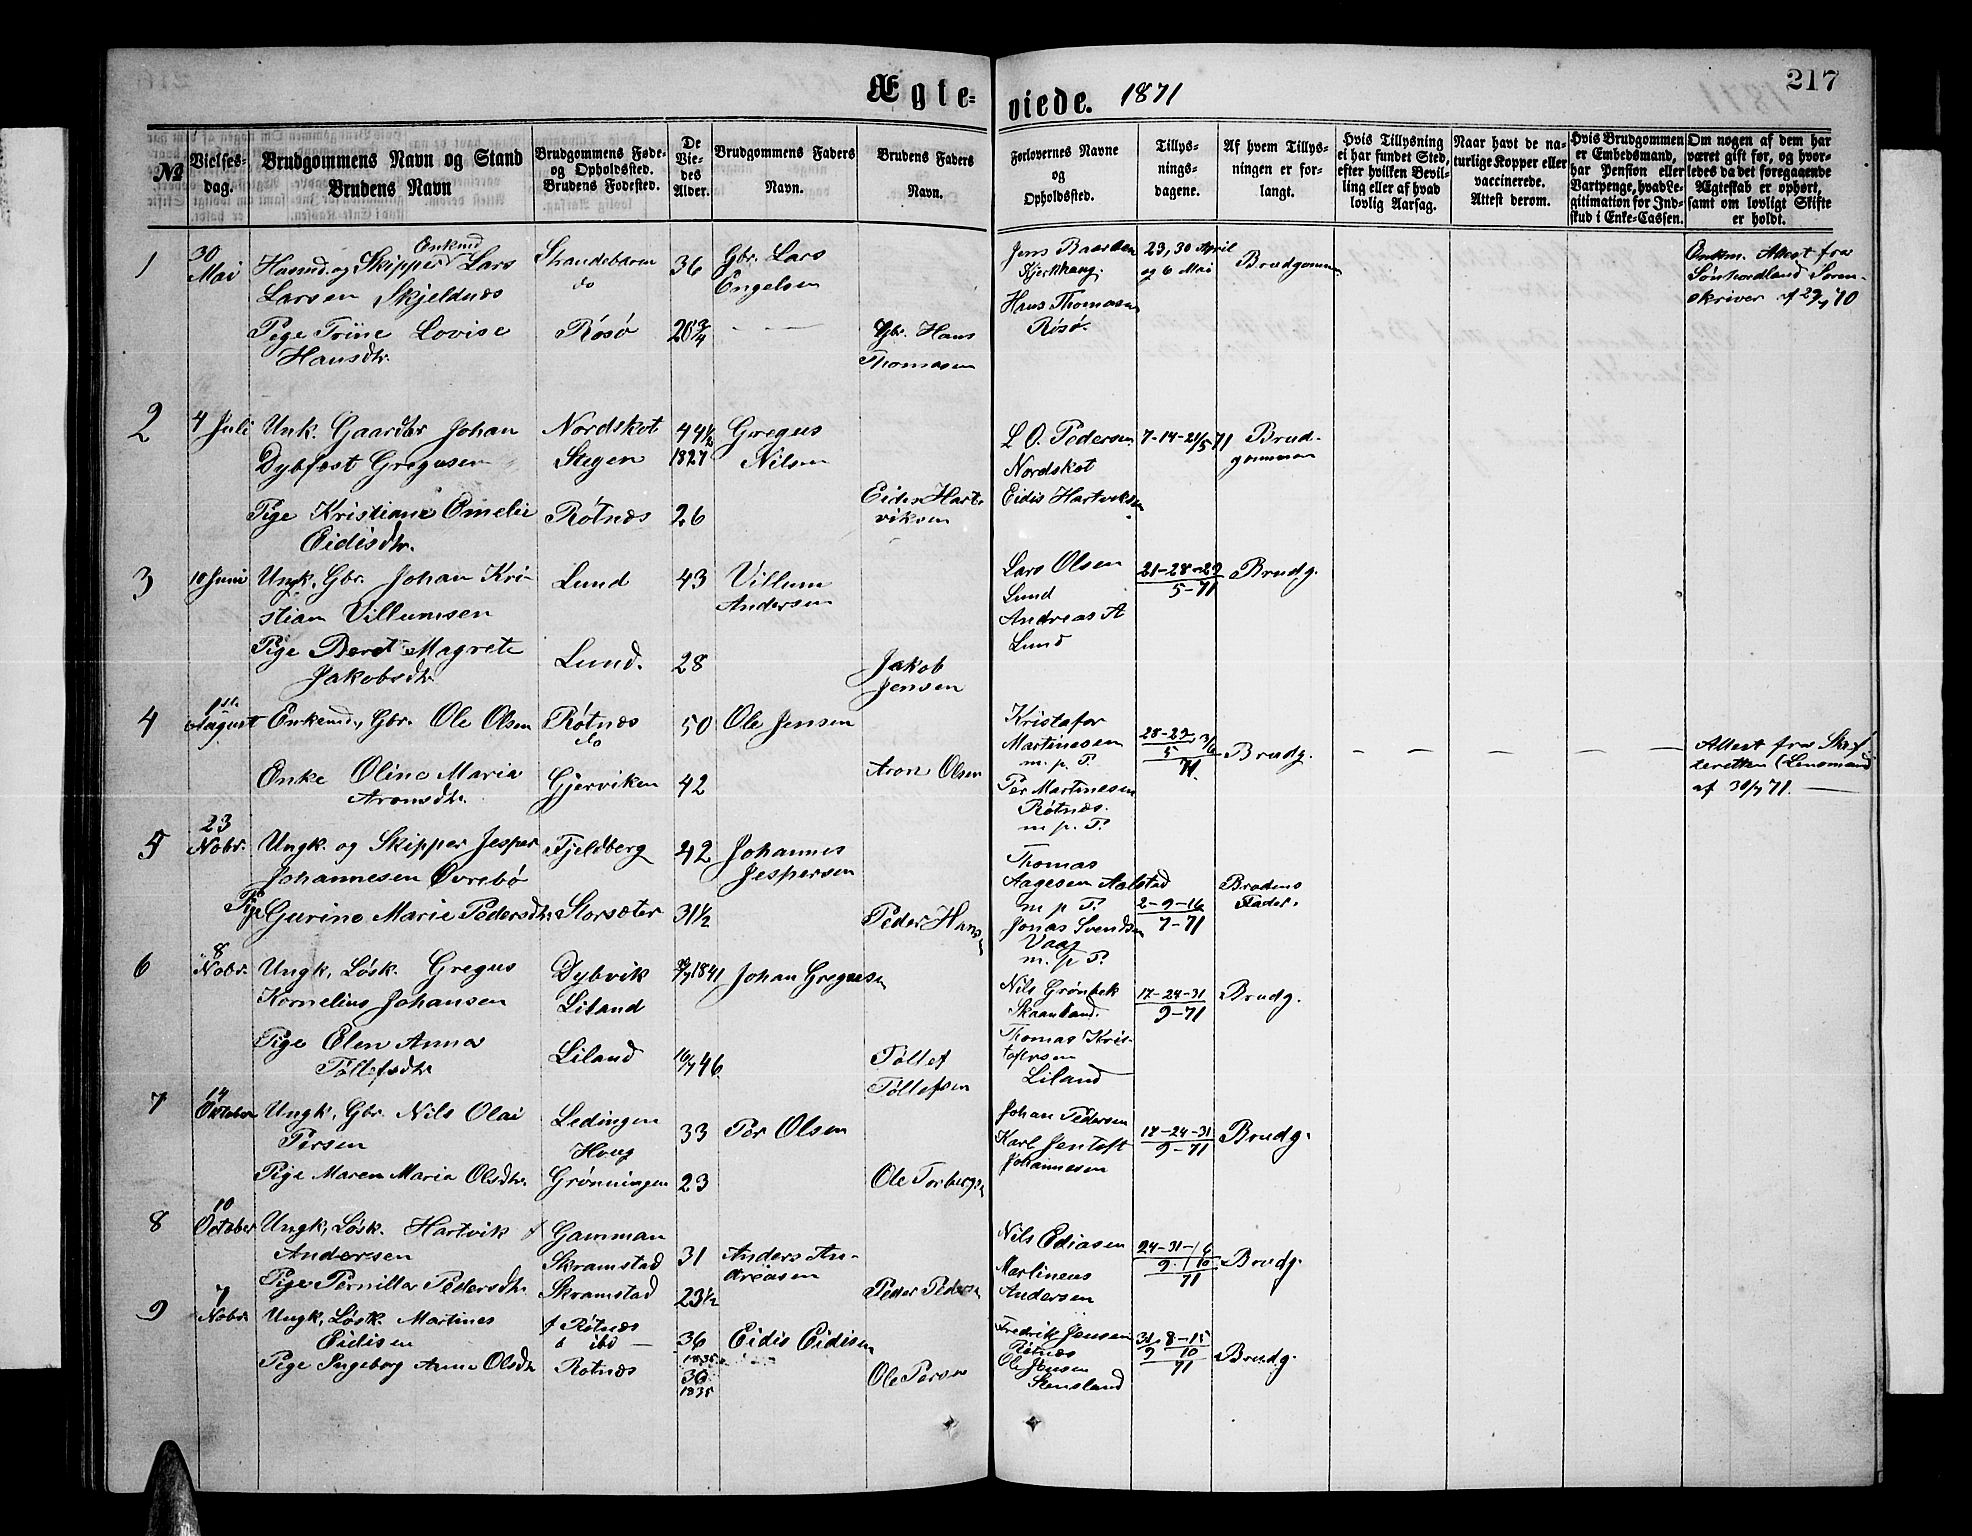 217
Ægteviede. 1871
№
Vielsesdag.
Brudgommens Navn og Stand
Brudens Navn
Brudgommens Føde- og Opholdssted.
Brudens Fødested.
De Viedes Alder.
Brudgommens Faders Navn.
Brudens Faders Navn.
Forlovernes Navne og Opholdssted.
Tillysningsdagene.
Af hvem Tillysningen er forlangt.
Hvis Tillysning ei har fundet Sted, efter hvilken Bevilling eller af hvad lovlig Aarsag.
Naar havt de naturlige Kopper eller vaccinerede. Attest derom.
Hvis Brudgommen er Embedsmand, har Pension eller Vartpenge, hvad Legitimation for Indskud i Enke-Cassen.
Om nogen af dem har været gift før, og hvorledes da det foregaaende Ægteskab er ophørt, samt om lovligt Skifte er holdt.
1
30 Mai
Husmd. og Skipper Enkemd Lars
Larsen Skjeldnæs
Strandebarm
do
36
Gbr. Lars
Engelsen
Jens Baardsen
Kjerkhaug.
Hans Thomasen
Røsø.
23, 30 April
og 6 Mai
Brudgommen
Enkm. Attest fra
Sønhordland Soren-
skriver af 29/4 70
Pige Trine Lovise
Hansdtr.
Røsø
20 3/4
Gbr. Hans
Thomasen
2
4 Juli
Unk. Gaardbr Johan
Dybfest Gregusen
Nordskot
Stegen
44 1/2
1827
Gregus
Nilsen
L O. Pedersen
Nordskot
Eidis Hartviksen
7-14-21/5 71
Brud-
gommen
Pige Kristiane Emelie
Eidisdtr.
Røtnæs
26
Eidis Hart-
viksen
3
10 Juni
Ungk, Gbr. Johan Kri-
stian Villumsen
Lund
43
Villum
Andersen
Lars Olsen
Lund
Andreas A
Lund
21-28-29
5-71
Brudg.
Pige Beret Magrete
Jakobsdtr
Lund.
28
Jakob
Jensen
4
1ste August
Enkemd, Gbr. Ole Olsen
Røtnæs
do
50
Ole Jensen
Kristafor
Martinesen
m. p. P.
Per Martinesen
Røtnæs.
m. p. P.
28-29 3/6
5
71
Brudg.
Attest fra Skif-
teretten (Lensmand
af 30/7 71.
Enke Oline Maria
Aronsdtr.
Gjerviken
42
Aron Olsen
5
23 Nobr.
Ungk. og Skipper Jesper
Johannesen Øvrebø
Fjeldberg
42
Johannes
Jespersen
Thomas
Aagesen Aalstad
m p P.
Jonas Svendsen
Vaag
m. p P.
2-9-16
7-71
Brudens
Fader.
Pige Gurine Marie Pedersdtr
Storsæter
31 1/2
Peder Hansen
6
8 Nobr.
Ungk, Løsk. Gregus
Kornelius Johansen
Dybvik
Liland
1841
Johan Gregusen
Nils Grønbek
Skaanland.
Thomas Kris-
tofersen
Liland
17-24-31
9-71
Brudg.
Pige Elen Anna
Tollefsdtr
Liland
16/7 46
Tollef
Tollefsen
7
14 Oktober
Ungk, Gbr. Nils Olai
Persen
Lødingen
Houg
33
Per Olsen
Johan Pedersen
Karl Jentoft
Johannesen
18-24-31
9-71
Brudg.
Pige Maren Maria Olsdtr.
Grønningen
23
Ole Torbergsen
8
10 October
Ungk, Løsk. Hartvik
Andersen
f Gamman
Skramstad
31
Anders An-
dreasen
Nils Ediasen
Martineus
Andersen
24-31-/6
9. /10
71
Brudg.
Pige Pernilla Pedersdtr
Skramstad
23 1/2
Peder Pedersen
9
7 Nobr.
Ungk, Løsk. Martines
Eidisen
f Røtnæs
b ibd
36
1835
Eidis Eidisen
Fredrik Jensen
Røtnæs
Ole Jensen
Stensland
31 8-15
9 10
71
Brudg.
Pige Ingeborg Anna Olsdtr
Røtnæs
36
1835
Ole Persen